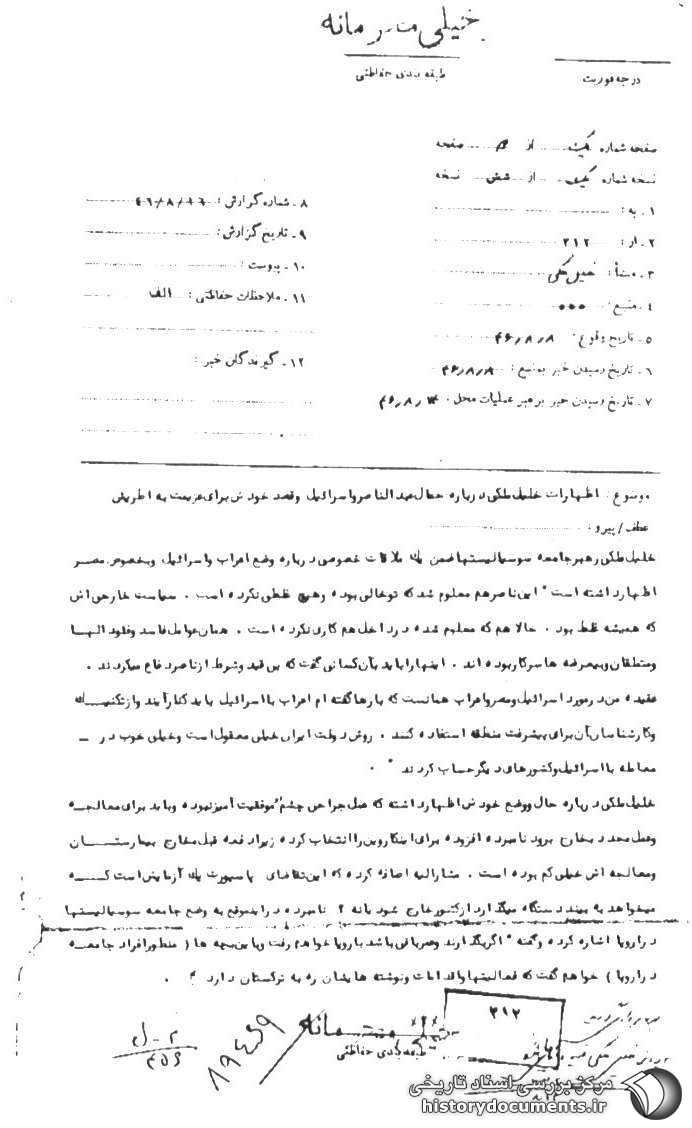 خیلی محرمانه
طبقه بندی حفاظتی
درجه فوریت
صفحه شماره یک از صفحه
نسخه شماره یک از شش نسخه
۱ـ به :
۲ـ از : ۳۱۲
۳ـ منشأ : خلیل ملکی
۴ـ منبع : ۰۰۰
۵ـ تاریخ وقوع : ۴۶/۸/۸
۶ـ تاریخ رسیدن خبر بمنبع : ۴۶/۸/۸
۷ـ تاریخ رسیدن خبر برهبر عملیات محل : ۴۶/۸/۱۴
۸ـ شماره گزارش :
۹ـ تاریخ گزارش :
۱۰ـ پیوست :
۱۱ـ ملاحظات حفاظتی : الف
۱۲ـ گیرندگان خبر :
موضوع : اظهارات خلیل ملکی درباره جمال عبدالناصر و اسرائیل وقصد خودش برای عزیمت به اطریش
عطف / پیرو :
خلیل ملکی رهبر جامعه سوسیالیستها ضمن یك ملاقات خصوصی درباره وضع اعراب واسرائیل وبخصوص مصر
اظهار داشته است " این ناصر هم معلوم شد که توخالی بوده وهیچ غلطی نکرده است . سیاست خارجی اش
که همیشه غلط بود . حالا هم که معلوم شده در داخل هم کاری نکرده است . همان عوامل فاسد وفئود الهـا
ومتملقان وبیعرضه ها سرکار بوده اند . اینها را باید بآن کسانی گفت که بی قید وشرط از ناصر دفاع میکردند .
عقیده من در مورد اسرائیل ومصر واعراب همانست که بارها گفته ام اعراب با اسرائیل باید کنار آیند واز تکنیـــك
وکارشناسان آن برای پیشرفت منطقه استفاده کنند . روش دولت ایران خیلی معقول است وخیلی خوب در ـ
معامله با اسرائیل وکشورهای دیگر حساب کردند " .
خلیل ملکی درباره حال ووضع خودش اظهار داشته که عمل جراحی چشم موفقیت آمیز نبوده وباید برای معالجـه
وعمل مجدد بخارج برود نامبرده افزوده برای اینکار وین را انتخاب کرده زیرا دفعه قبل مخارج بیمارستــان
ومعالجه اش خیلی کم بوده است . مشارالیه اضافه کرده که این تقاضای پاسپورت یك آزمایش است کـــه
میخواهد به بیند دستگاه میگذارد از کشور خارج شود یا نه ؟ نامبرده در اینموقع به وضع جامعه سوسیالیستها
در اروپا اشاره کرده وگفته " اگر بگذارند وعمر باقی باشد باروپا خواهم رفت وبا این بچه ها ( منظور افراد جامعــه
در اروپا ) خواهم گفت که فعالیتها واقدامات ونوشته هایشان ره به ترکستان دارد " .
۳۱۲
خیلی محرمانه
طبقه بندی حفاظتی
مرکز بررسی اسناد تاریخی
historydocuments.ir